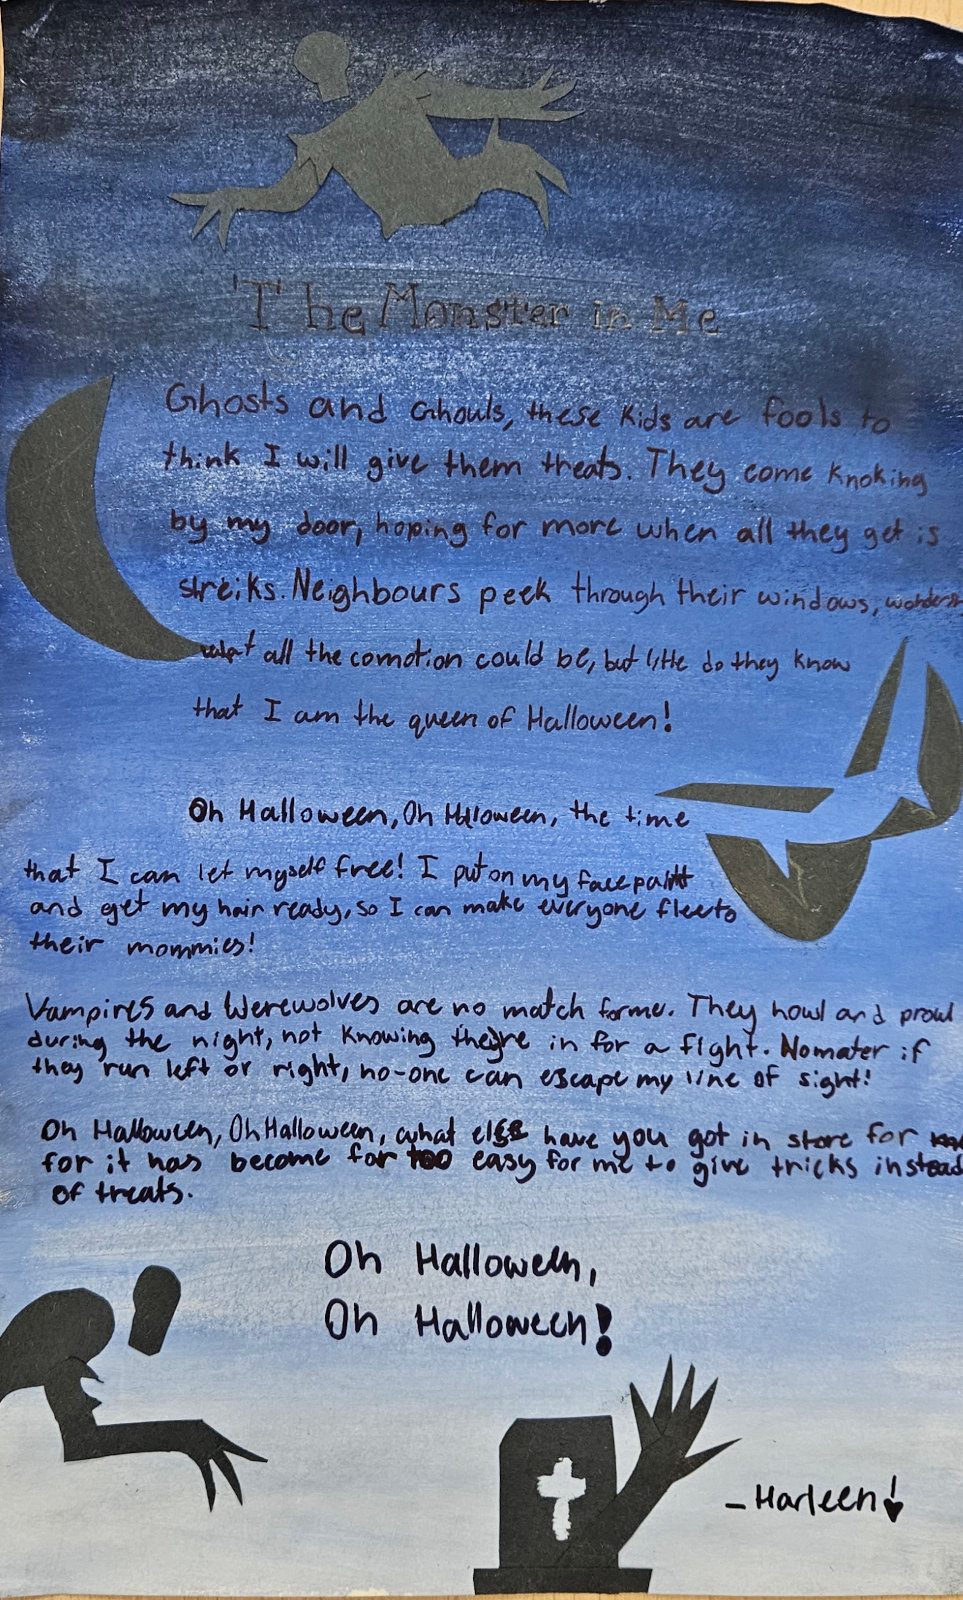 The Monster in Me
Ghosts and Ghouls, these kids are fools to
think I will give them treats. They come knoking
by my door, hoping for more when all they get is
streiks. Neighbours peek through their windows,
what all the comotion could be, but little do they know
that I am the queen of Halloween!
Oh Halloween, Oh Halloween, the time
that I can let myself free! I put on my face paint
and get my hair ready, so I can make everyone flee to
their mommies!
Vampires and Werewolves are no match for me. They howl and prowl
during the night, not knowing they're in for a fight. No mater if
they run left or right, no-one can escape my line of sight!
Oh Halloween, Oh Halloween, what else have you got in store for me
for it has become far too easy for me to give tricks instead
of treats.
Oh Halloween,
Oh Halloween!
- Harleen